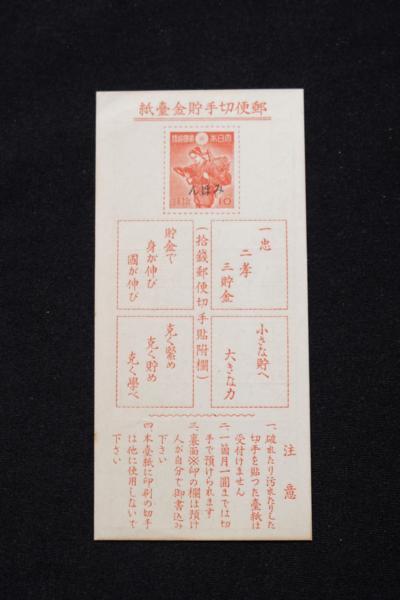 郵便切手貯金臺紙
みほん
10
一忠
二孝
三貯金
貯金で
身が伸び
國が伸び
(拾錢郵便切手貼附欄)
小さな貯へ
大きな力
克く緊め
克く貯め
克く學べ
注意
一、破れたり汚れたりした
切手を貼つた臺紙は
受付けません
二、一箇月一圓までは切
手で預けられます
三、裏面※印の欄は預け
人が自分で御書込み
下さい
四、本臺紙に印刷の切手
は他に使用しないで
下さい